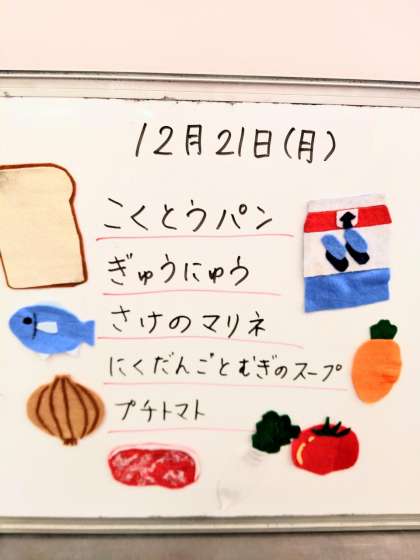 12月21日(月)
こくとうパン
ぎゅうにゅう
さけのマリネ
にくだんごとむぎのスープ
プチトマト